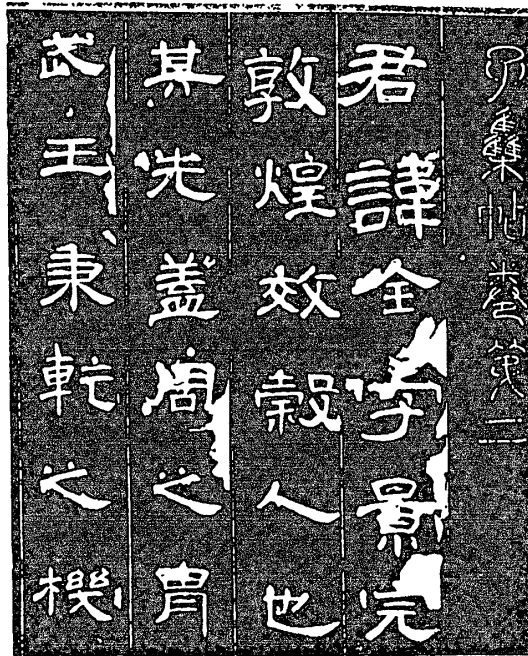 集帖卷第二
君諱全字景完
敦煌效穀人也
其先蓋周之胄
武王秉乾之機